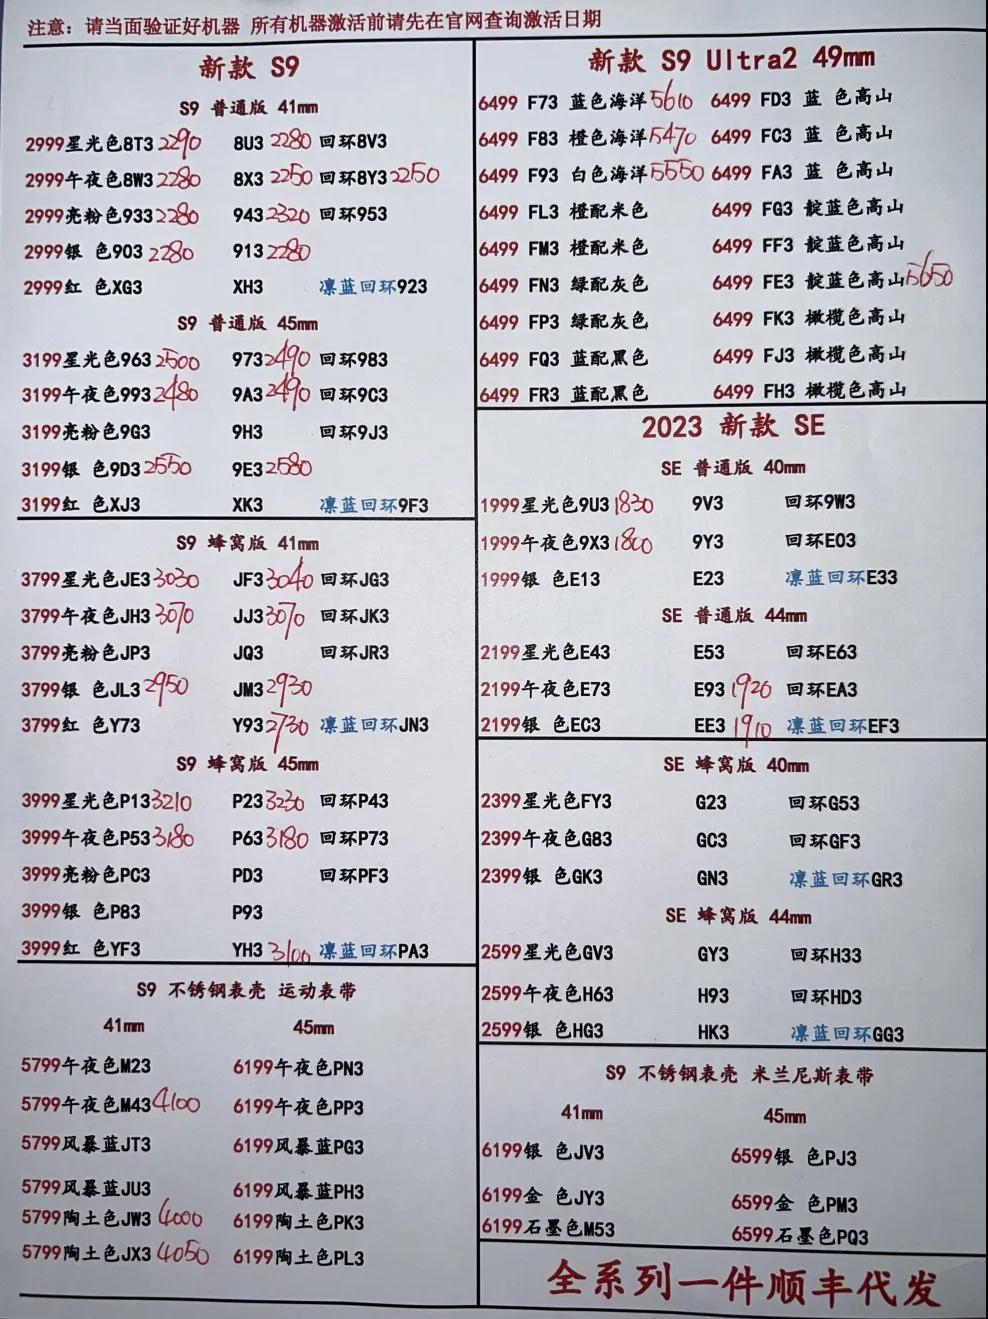 注意：请当面验证好机器 所有机器激活前请先在官网查询激活日期
新款 S9
S9 普通版 41mm
2999星光色8T3 2290 8U3 2280 回环8V3
2999午夜色8W3 2280 8X3 2250 回环8Y3 2250
2999亮粉色933 2280 943 2320 回环953
2999银 色903 2280 913 2280
2999红 色XG3 XH3 凛蓝回环923
S9 普通版 45mm
3199星光色963 2500 973 2490 回环983
3199午夜色993 2480 9A3 2490 回环9C3
3199亮粉色9G3 9H3 回环9J3
3199银 色9D3 2550 9E3 2580
3199红 色XJ3 XK3 凛蓝回环9F3
S9 蜂窝版 41mm
3799星光色JE3 3030 JF3 3040 回环JG3
3799午夜色JH3 3070 JJ3 3070 回环JK3
3799亮粉色JP3 JQ3 回环JR3
3799银 色JL3 2950 JM3 2930
3799红 色Y73 Y93 2730 凛蓝回环JN3
S9 蜂窝版 45mm
3999星光色P13 3210 P23 3230 回环P43
3999午夜色P53 3180 P63 3180 回环P73
3999亮粉色PC3 PD3 回环PF3
3999银 色P83 P93
3999红 色YF3 YH3 3100 凛蓝回环PA3
S9 不锈钢表壳 运动表带
41mm 45mm
5799午夜色M23 6199午夜色PN3
5799午夜色M43 4100 6199午夜色PP3
5799风暴蓝JT3 6199风暴蓝PG3
5799风暴蓝JU3 6199风暴蓝PH3
5799陶土色JW3 4000 6199陶土色PK3
5799陶土色JX3 4050 6199陶土色PL3
新款 S9 Ultra2 49mm
6499 F73 蓝色海洋 5610 6499 FD3 蓝 色高山
6499 F83 橙色海洋 5470 6499 FC3 蓝 色高山
6499 F93 白色海洋 5550 6499 FA3 蓝 色高山
6499 FL3 橙配米色 6499 FG3 靛蓝色高山
6499 FM3 橙配米色 6499 FF3 靛蓝色高山
6499 FN3 绿配灰色 6499 FE3 靛蓝色高山 5650
6499 FP3 绿配灰色 6499 FK3 橄榄色高山
6499 FQ3 蓝配黑色 6499 FJ3 橄榄色高山
6499 FR3 蓝配黑色 6499 FH3 橄榄色高山
2023 新款 SE
SE 普通版 40mm
1999星光色9U3 1830 9V3 回环9W3
1999午夜色9X3 1800 9Y3 回环E03
1999银 色E13 E23 凛蓝回环E33
SE 普通版 44mm
2199星光色E43 E53 回环E63
2199午夜色E73 E93 1920 回环EA3
2199银 色EC3 EE3 1910 凛蓝回环EF3
SE 蜂窝版 40mm
2399星光色FY3 G23 回环G53
2399午夜色G83 GC3 回环GF3
2399银 色GK3 GN3 凛蓝回环GR3
SE 蜂窝版 44mm
2599星光色GV3 GY3 回环H33
2599午夜色H63 H93 回环HD3
2599银 色HG3 HK3 凛蓝回环GG3
S9 不锈钢表壳 米兰尼斯表带
41mm 45mm
6199银 色JV3 6599银 色PJ3
6199金 色JY3 6599金 色PM3
6199石墨色M53 6599石墨色PQ3
全系列一件顺丰代发